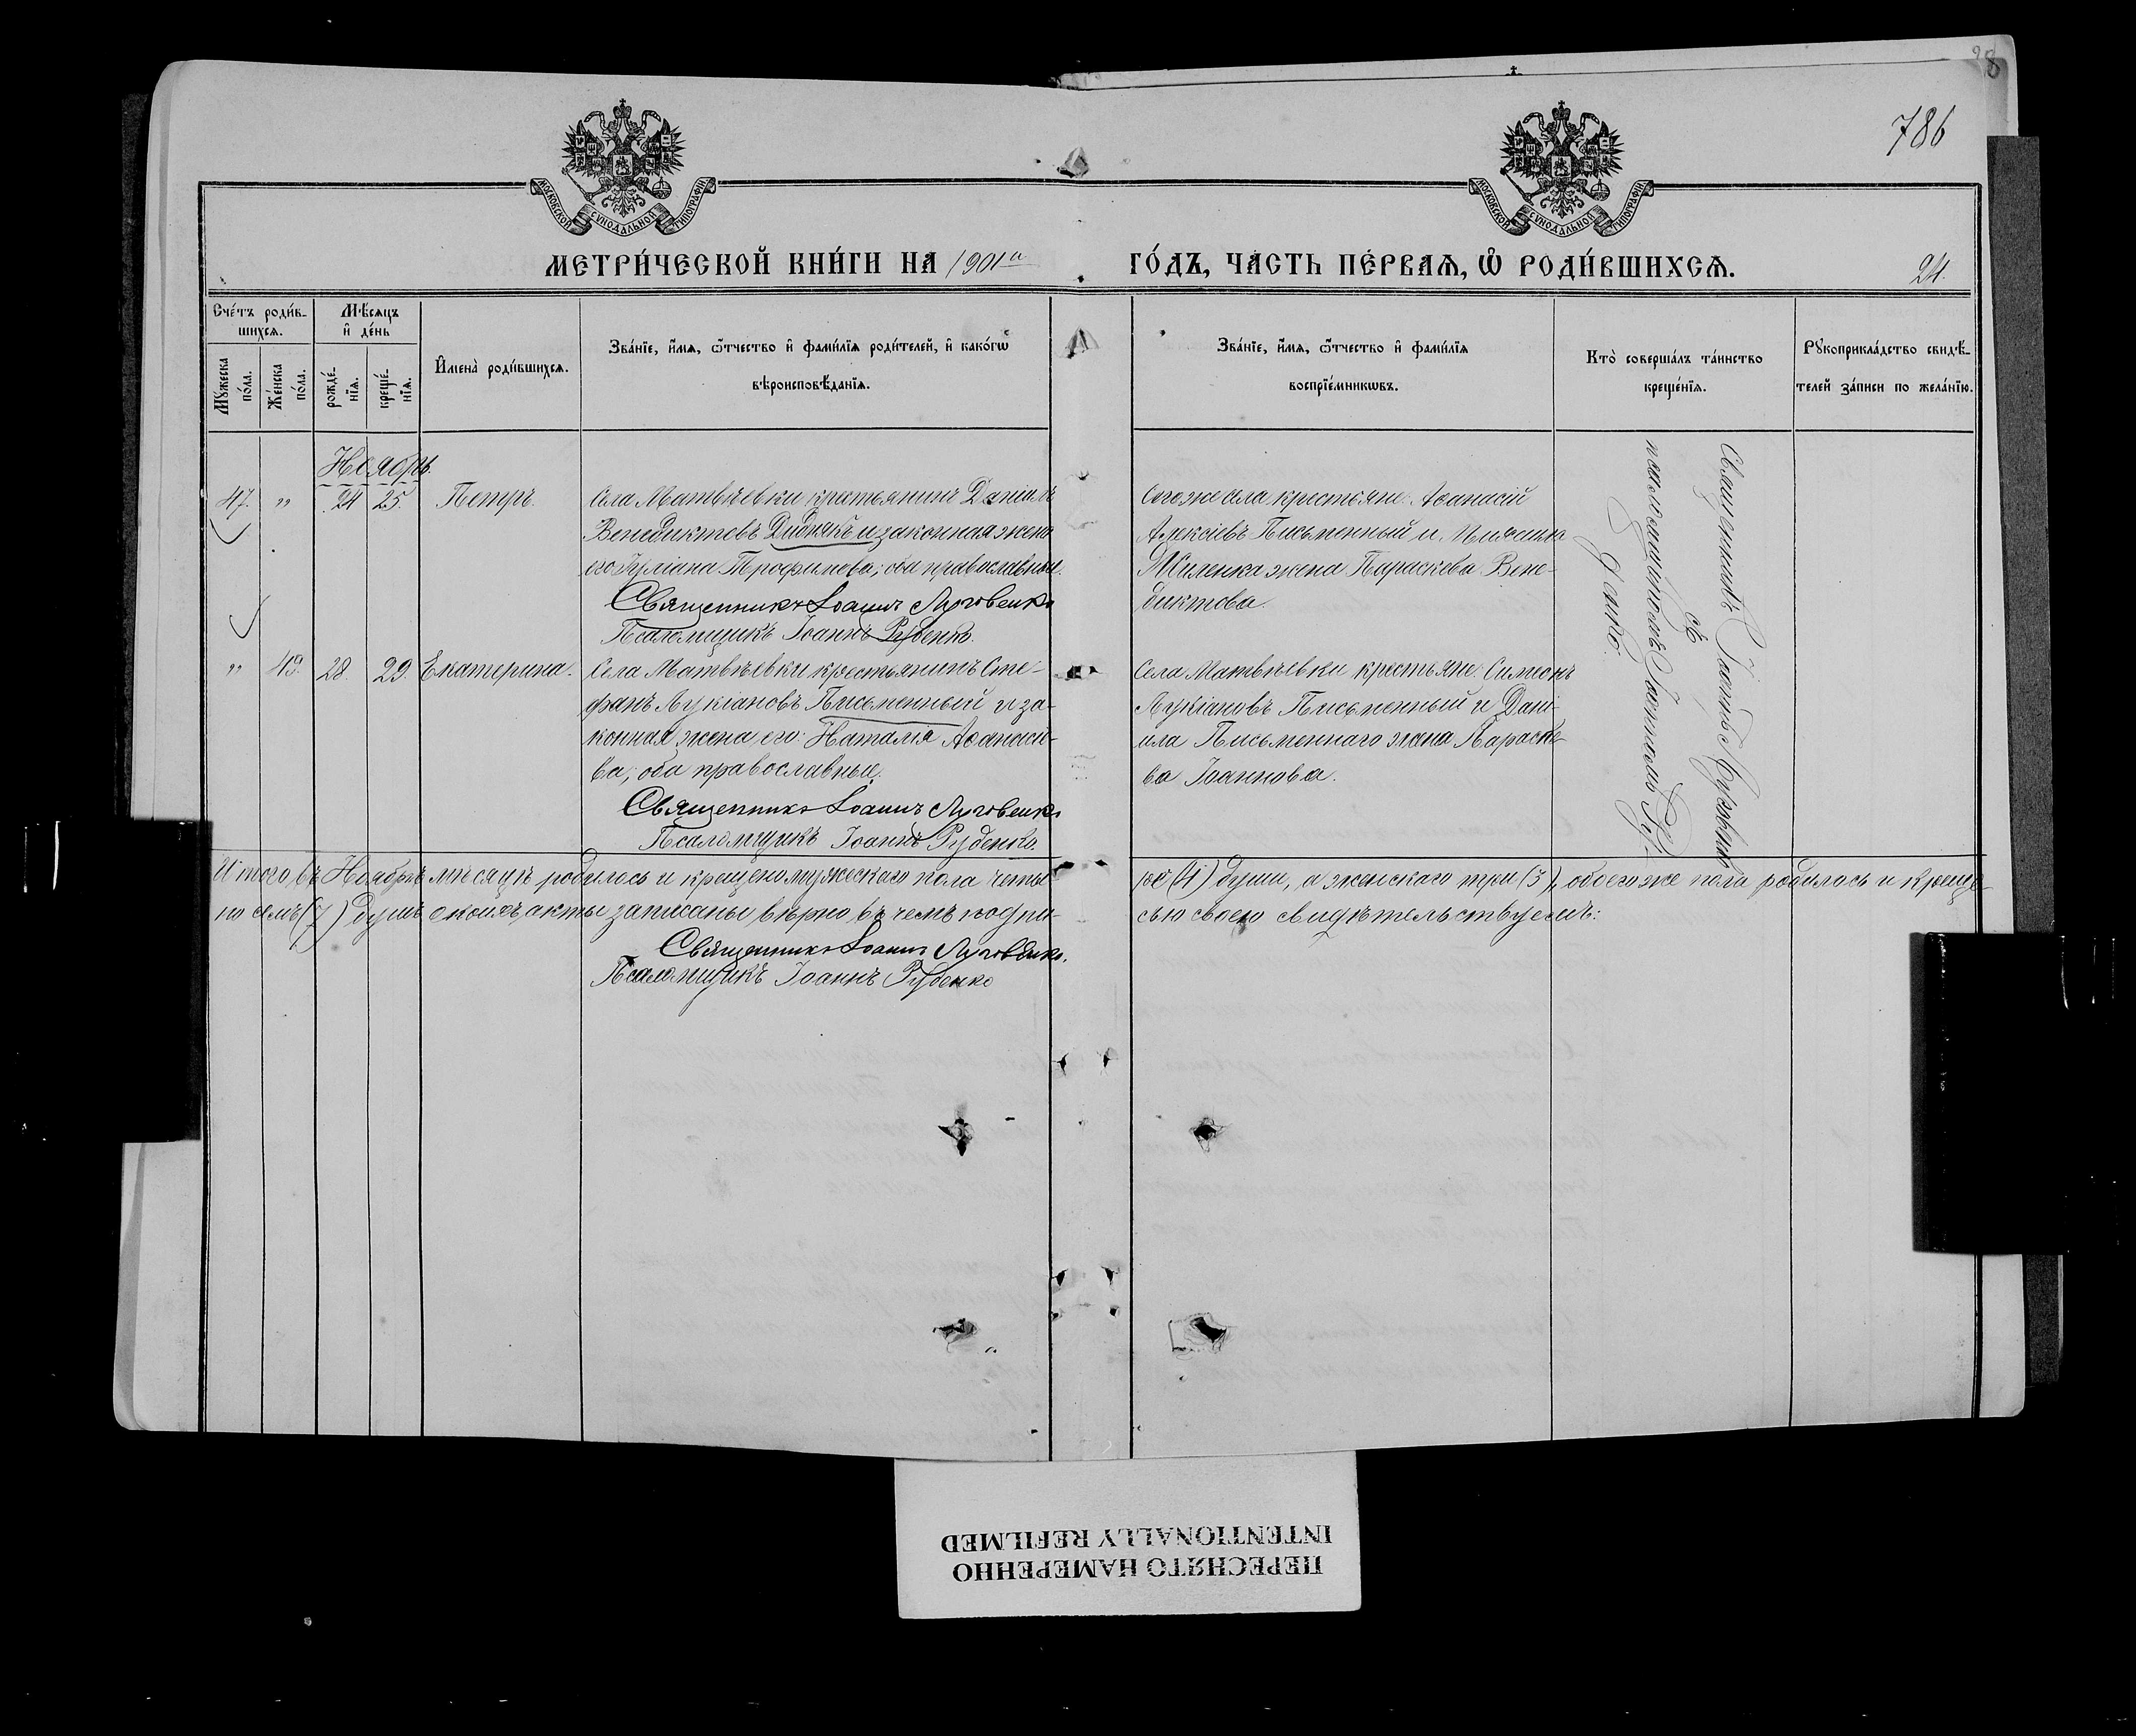 28
786
МОСКОВСКОЙ СѴНОДАЛЬНОЙ ТИПОГРАФІИ
МОСКОВСКОЙ СѴНОДАЛЬНОЙ ТИПОГРАФІИ
МЕТРИ́ЧЕСКОЙ КНИ́ГИ НА 1901й ГО́ДЪ, ЧА́СТЬ ПЕ́РВАѦ, Ѽ РОДИ́ВШИХСѦ.
24.
Сче́тъ роди́в-
шихсѧ.
Мꙋ́жеска
по́ла.
Же́нска
по́ла.
Мѣ́сѧцъ
и҆ де́нь
рожде́-
нїѧ.
креще́-
нїѧ.
И҆мена̀ роди́вшихсѧ.
Зва́нїе, и҆́мѧ, ѻ҆́тчество и҆ фами́лїѧ роди́телей, и҆ како́гѡ
вѣроисповѣ́данїѧ.
Зва́нїе, и҆́мѧ, ѻ҆́тчество и҆ фами́лїѧ
воспрїе́мникѡвъ.
Кто̀ соверша́лъ та́инство
креще́нїѧ.
Рꙋкоприкла́дство свидѣ́-
телей за́писи по жела́нїю.
Ноябрь
47. " 24 25. Петръ.
Села Матвѣевки крестьянинъ Даніилъ
Венедиктовъ и законная жена
его Іуліана Трофимова; оба православные.
Священникъ Іоаннъ Луговенко
Псаломщикъ Іоаннъ Рубенко.
Тогоже села крестьяне: Аѳанасій
Алексіевъ Письменный и
жена Параскева Вене-
диктова.
" 49. 28. 29. Екатерина.
Села Матвѣевки крестьянинъ Сте-
фанъ Лукіановъ Письменный и за-
конная жена его: Наталія Аѳанасі-
ва; оба православные.
Священникъ Іоаннъ Луговенко
Псаломщикъ Іоаннъ Рубенко.
Села Матвѣевки крестьяне: Симеонъ
Лукіановъ Письменный и Дані-
ила Письменнаго жена Параске-
ва Іоаннова.
Священникъ Іоаннъ Луговенко
съ
псаломщикомъ Іоанномъ Ру-
бенко.
Итого въ Ноябрѣ мѣсяцѣ родилось и крещено мужескаго пола четы-
ре (4) души, а женскаго три (3), обоего же пола родилось и креще-
но семь (7) душъ о коихъ акты записаны вѣрно, въ чемъ подпи-
сью своею свидѣтельствуемъ:
Священникъ Іоаннъ Луговенко.
Псаломщикъ Іоаннъ Рубенко
ПЕРЕСНЯТО НАМЕРЕННО
INTENTIONALLY REFILMED